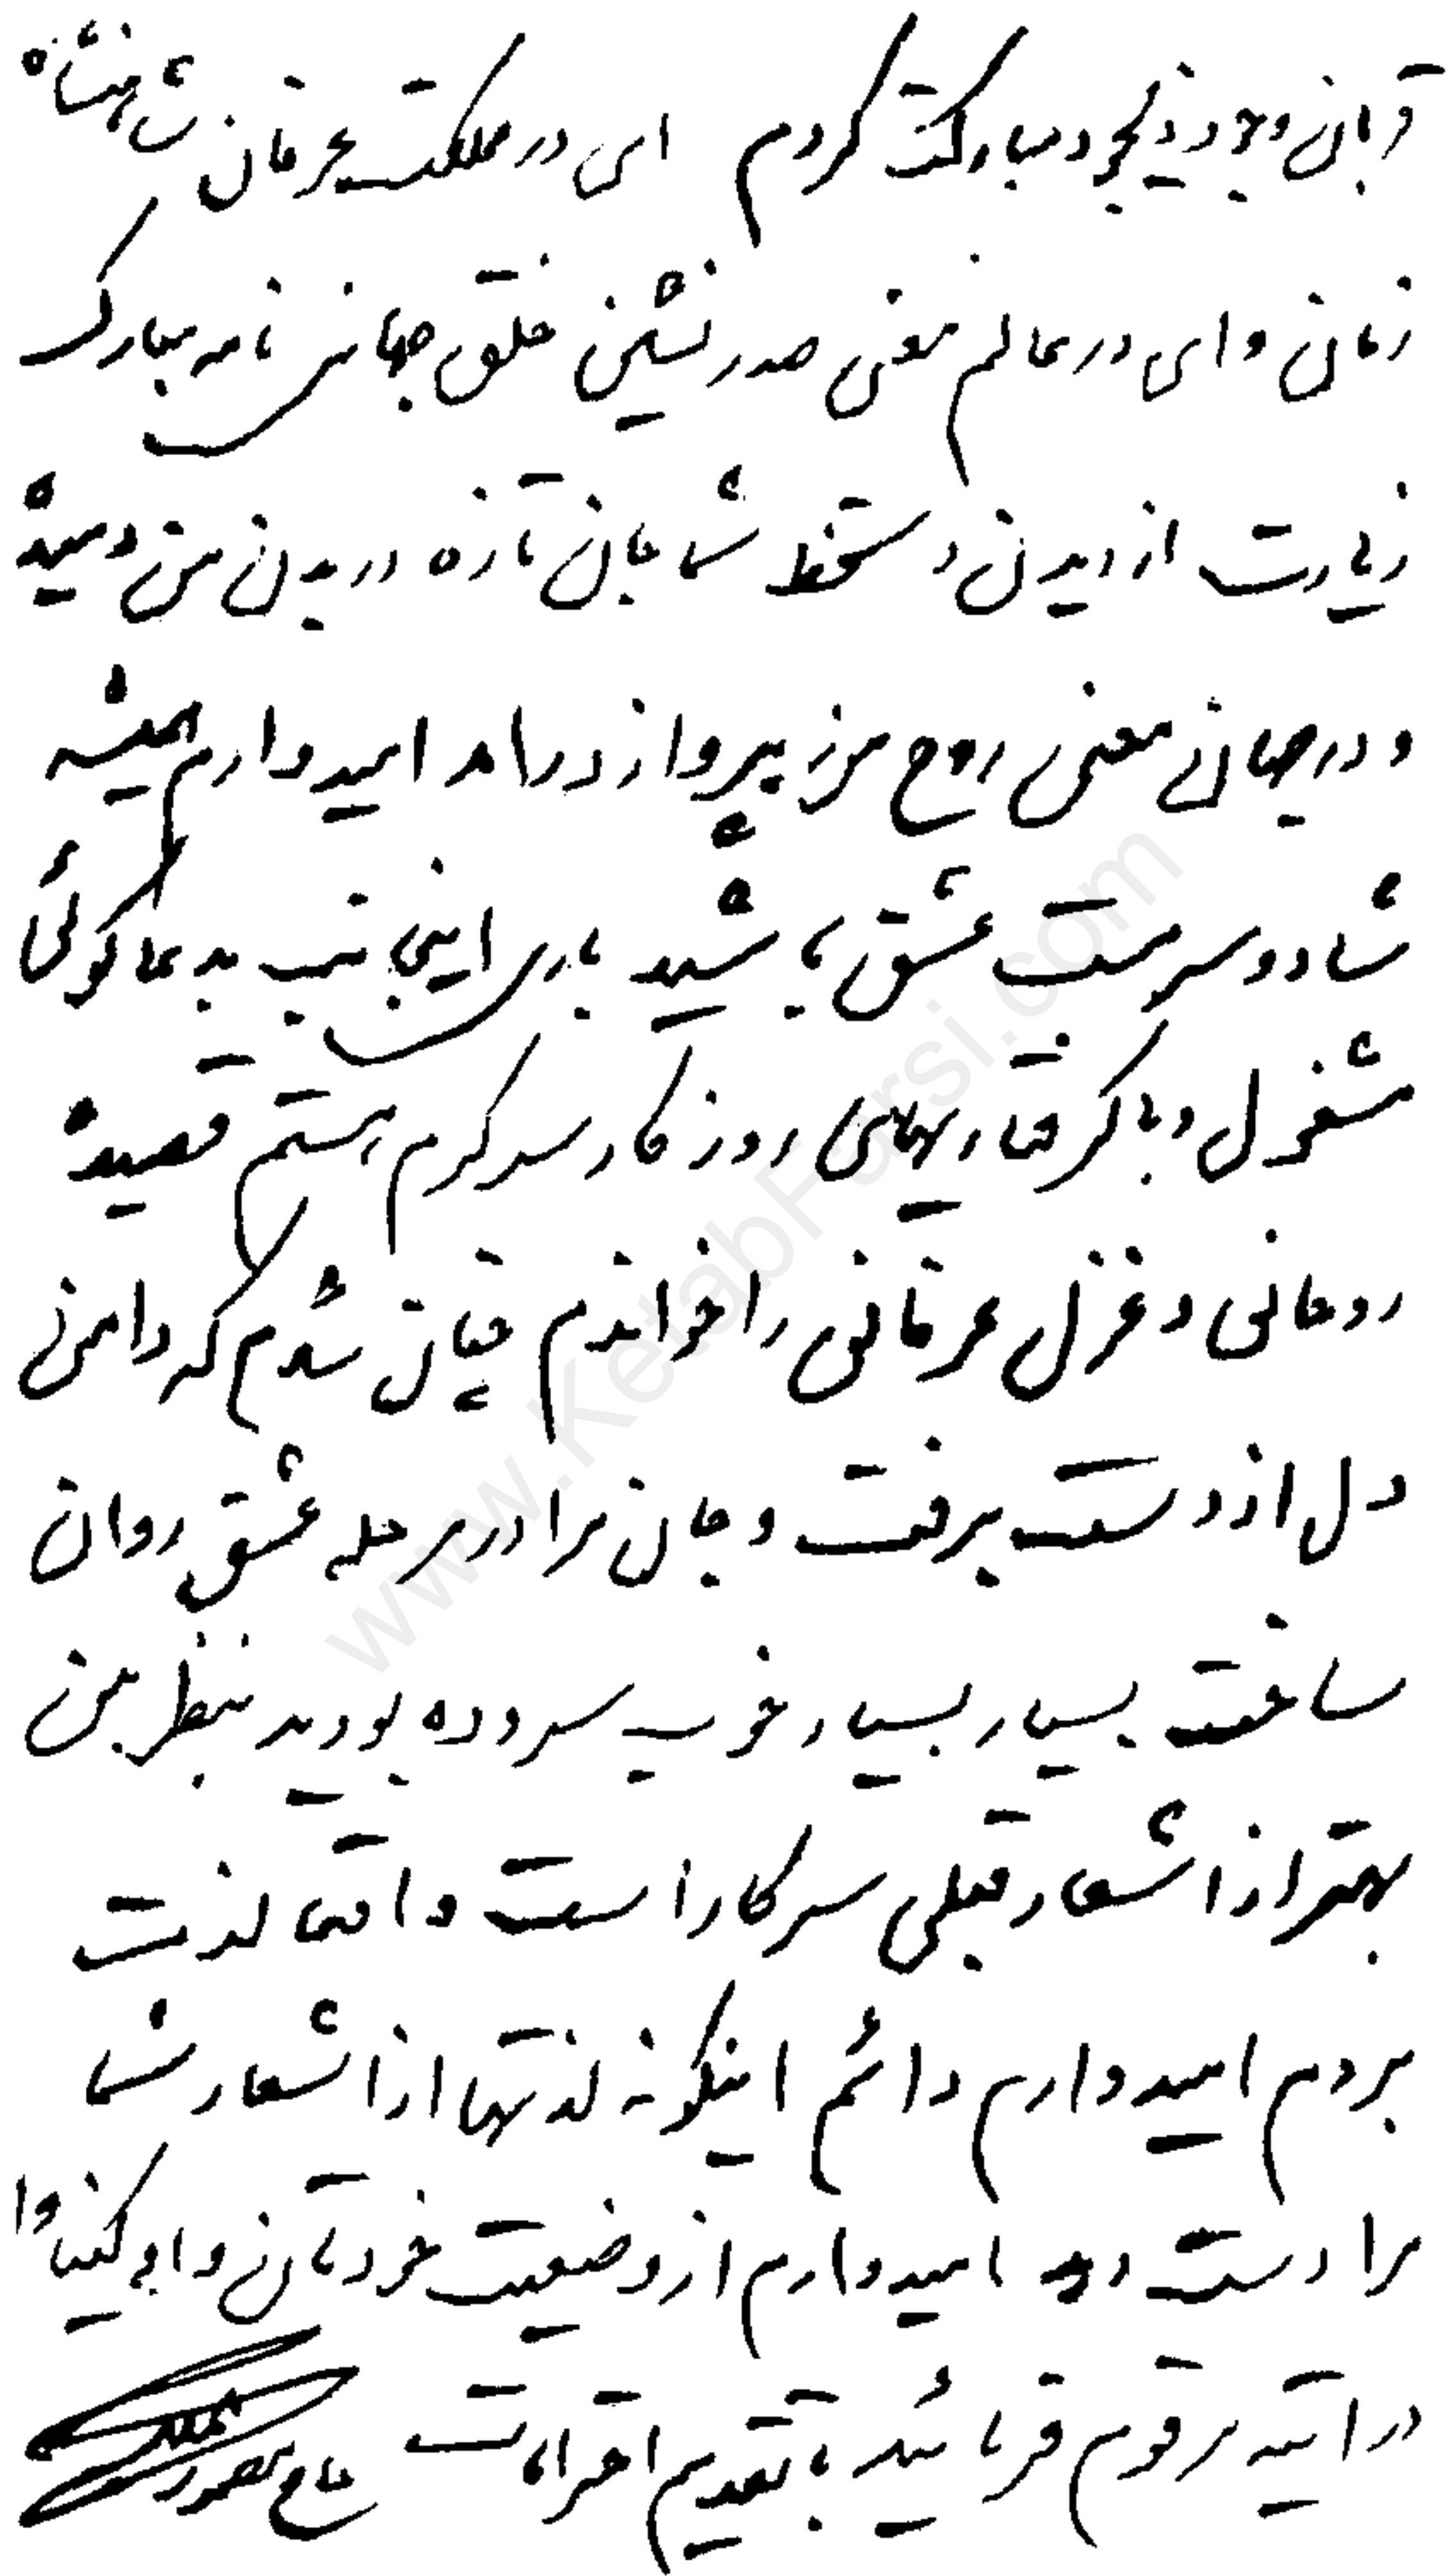 قربان وجود ذیجود مبارکت گردم ای در مملکت عرفان شاهنشاه
زمان و ای در عالم معنی صدر نشین خلق جهانی نامه مبارک
زیارت از دیدن دستخط شما جان تازه در بدن من دمیده
و در جهان معنی روح من بپرواز درآمد امیدوارم همیشه
شاد و سرمست عشق باشید باری اینجانب بدعاگوئی
مشغول و با گرفتاریهای روزگار سرگرم هستم قصیده
روحانی و غزل عرفانی را خواندم چنان شدم که دامن
دل از دست برفت و جان مرا در مرحله عشق روان
ساخت بسیار بسیار خوب سروده بودید بنظر من
بهتر از اشعار قبلی سرکار است واقعا لذت
بردم امیدوارم دائم اینگونه لذتها از اشعار شما
مرا دست دهد امیدوارم از وضعیت خودتان و
در آتیه مرقوم فرمائید با تقدیم احترامات
www.KetabFarsi.com